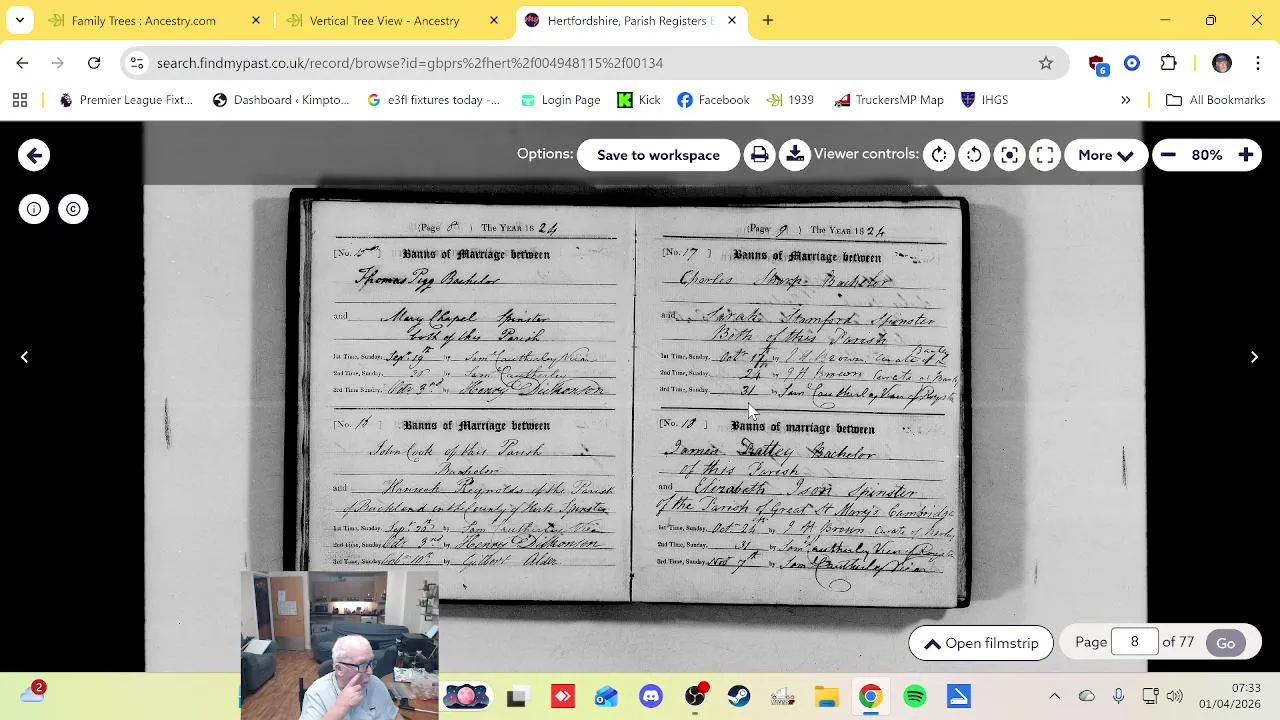 Family Trees : Ancestry.com
Vertical Tree View - Ancestry
Hertfordshire, Parish Registers B
search.findmypast.co.uk/record/browse?id=gbprs%2fhert%2f004948115%2f00134
6
Premier League Fixt...
Dashboard ‹ Kimpto...
e3fl fixtures today -...
Login Page
Kick
Facebook
1939
TruckersMP Map
IHGS
»
All Bookmarks
Options:
Save to workspace
Viewer controls:
More
80%
(Page 8 ) The YEAR 1824
[No. 15 ] Banns of Marriage between
Thomas Pigg Bachelor
and Mary Chapel Spinster
both of this Parish
1st Time, Sunday, Sept 19th by Saml Cautherley Vicar
2nd Time, Sunday, 26 by Saml Cautherley
3rd Time, Sunday, Octr 3rd by Henry Dickonson
[No. 16 ] Banns of Marriage between
John Cook of this Parish
Bachelor
and Hannah Reynolds of the Parish
of Buckland in the County of Herts Spinster
1st Time, Sunday, Sept 26th by Saml Cautherley
2nd Time, Sunday, Octr 3rd by Henry Dickonson
3rd Time, Sunday, 10th by Gilbert Alder
(Page 9 ) The YEAR 1824
[No. 17 ] Banns of Marriage between
Charles Sharp Bachelor
and Sarah Stamford Spinster
Both of this Parish
1st Time, Sunday, Oct 17th by J H Brown Curate
2nd Time, Sunday, 24th by J H Brown Curate
3rd Time, Sunday, 31 by Saml Cautherley Vicar of Royston
[No. 18 ] Banns of marriage between
James Bailey Bachelor
of this Parish
and Elizabeth Ison Spinster
of the Parish of Great St Mary's Cambridge
1st Time, Sunday, Oct 24th by J H Brown Curate of
2nd Time, Sunday, 31 by Saml Cautherley Vicar of Royston
3rd Time, Sunday, Nov 7th by Saml Cautherley Vicar
Open filmstrip
Page 8 of 77 Go
2
07:33
01/04/2026